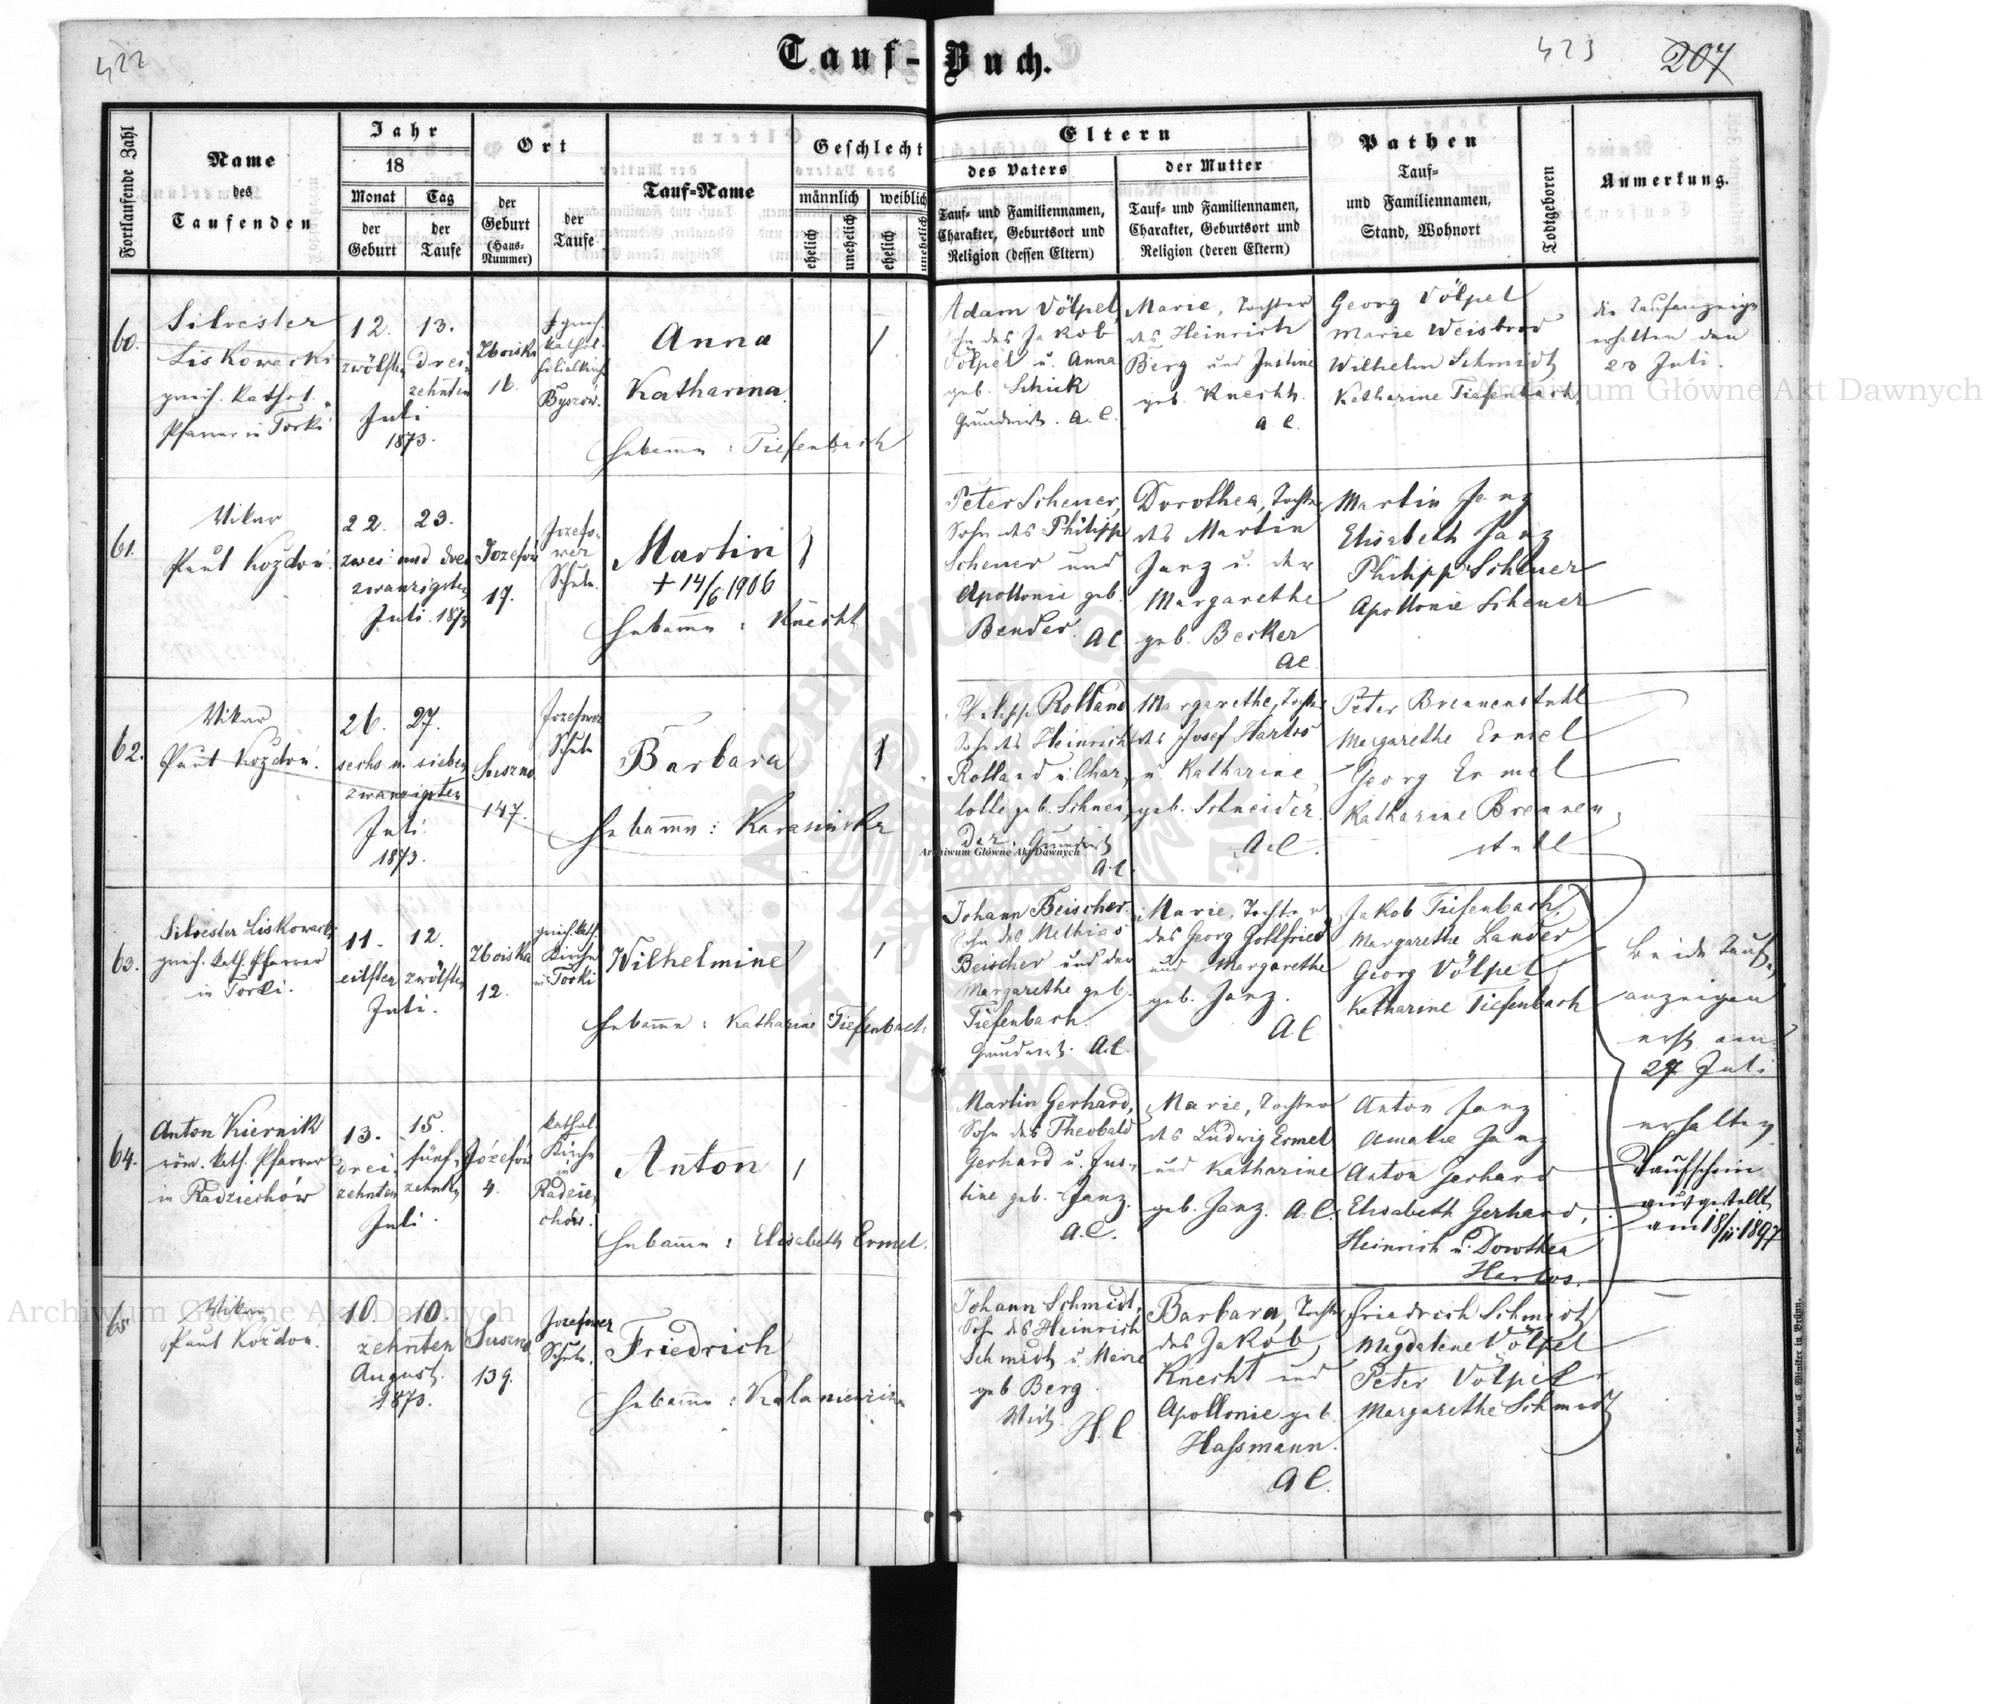 422
Tauf-Buch.
423
207
Fortlaufende Zahl
Name
des
Taufenden
Jahr
18
Monat
der
Geburt
Tag
der
Taufe
Ort
der
Geburt
(Haus-
Nummer)
der
Taufe
Tauf-Name
Geschlecht
männlich
weiblich
ehelich
unehelich
ehelich
unehelich
Eltern
des Vaters
Tauf- und Familiennamen,
Charakter, Geburtsort und
Religion (dessen Eltern)
der Mutter
Tauf- und Familiennamen,
Charakter, Geburtsort und
Religion (deren Eltern)
Pathen
Tauf-
und Familiennamen,
Stand, Wohnort
Todtgeboren
Anmerkung.
60.
Silvester
Liskowacki
griech. kathol.
Pfarrer in Torki
12. 13.
zwölften drei-
zehnten
Juli
1873.
Zboiska
16.
griech.
kathol.
Filialkirche
Byszow.
Anna
Katharina.
Hebamme: Tiefenbach
Adam Völpel,
Sohn des Jakob
Völpel u. Anna
geb. Schick
Grundwirt. A.C.
Marie, Tochter
des Heinrich
Berg und Justine
geb. Knecht.
A.C.
Georg Völpel
Marie Weisbrod
Wilhelm Schmidt
Katharine Tiefenbach
die Taufanzeige
erhalten den
23 Juli.
61.
Vikar
Paul Kozdoń.
22. 23.
zwei und drei
zwanzigsten
Juli. 1873
Jozefow
17.
Jozefo-
wer
Schule.
Martin
+ 14/6 1906
Hebamme: Knecht
Peter Scheuer,
Sohn des Philipp
Scheuer und
Apollonie geb.
Bender. AC.
Dorothea, Tochter
des Martin
Janz u. der
Margarethe
geb. Becker
AC.
Martin Janz
Elisabeth Janz
Philipp Scheuer
Apollonie Scheuer
62.
Vikar
Paul Kozdoń.
26. 27.
sechs u. sieben
zwanzigsten
Juli.
1873.
Suszno
147.
Jozefower
Schule
Barbara
Hebamme: Karasinska
Philipp Rolland
Sohn des Heinrich
Rolland u. Char,
lotte geb. Schnei,
der. Grundwirt
A.C.
Margarethe, Tochter
des Josef Hartos
u. Katharine
geb. Schneider.
A.C.
Peter Brennenstuhl
Margarethe Ermel
Georg Ermel
Katharine Brennen,
stuhl
63.
Silvester Liskowacki
griech. kath. Pfarrer
in Torki.
11. 12.
eilften zwölften
Juli.
Zboiska
12.
griech. kath.
Kirche
in Torki
Wilhelmine
Hebamme: Katharine Tiefenbach
Johann Beischer
Sohn des Mathias
Beischer und der
Margarethe geb.
Tiefenbach.
Grundwirt. A.C.
Marie, Tochter
des Georg Gottfried
und Margarethe
geb. Janz.
AC
Jakob Tiefenbach,
Margarethe Lander
Georg Völpel
Katharine Tiefenbach
beide Tauf-
anzeigen
erst am
27 Juli
erhalten
64.
Anton Kiernik
röm. kath. Pfarrer
in Radziechów
13. 15.
drei- fünf-
zehnten zehnten
Juli.
Józefow
4.
kathol.
Kirche
in
Radzie,
chów.
Anton
Hebamme: Elisabeth Ermel.
Martin Gerhard,
Sohn des Theobald
Gerhard u. Jus-
tine geb. Janz.
A.C.
Marie, Tochter
des Ludwig Ermel
und Katharine
geb. Janz. A.C.
Anton Janz
Amalie Janz
Anton Gerhard
Elisabeth Gerhard,
Heinrich u. Dorothea
Hartos.
Taufschein
ausgestellt
am 18/ii 1897
65
Vikar
Paul Kozdon.
10. 10.
zehnten
August.
1873.
Suszno
139.
Jozefower
Schule.
Friedrich
Hebamme:
Johann Schmidt,
Sohn des Heinrich
Schmidt u. Marie
geb Berg
Wirt. H.C.
Barbara, Tochter
des Jakob,
Knecht und
Apollonie geb.
Hassmann.
AC.
Friedrich Schmidt
Magdalene Völpel
Peter Völpel
Margarethe Schmidt
Druck von C. Winiker in Brünn.
Archiwum Główne Akt Dawnych
Archiwum Główne Akt Dawnych
Archiwum Główne Akt Dawnych
ARCHIWUM GŁÓWNE AKT DAWNYCH